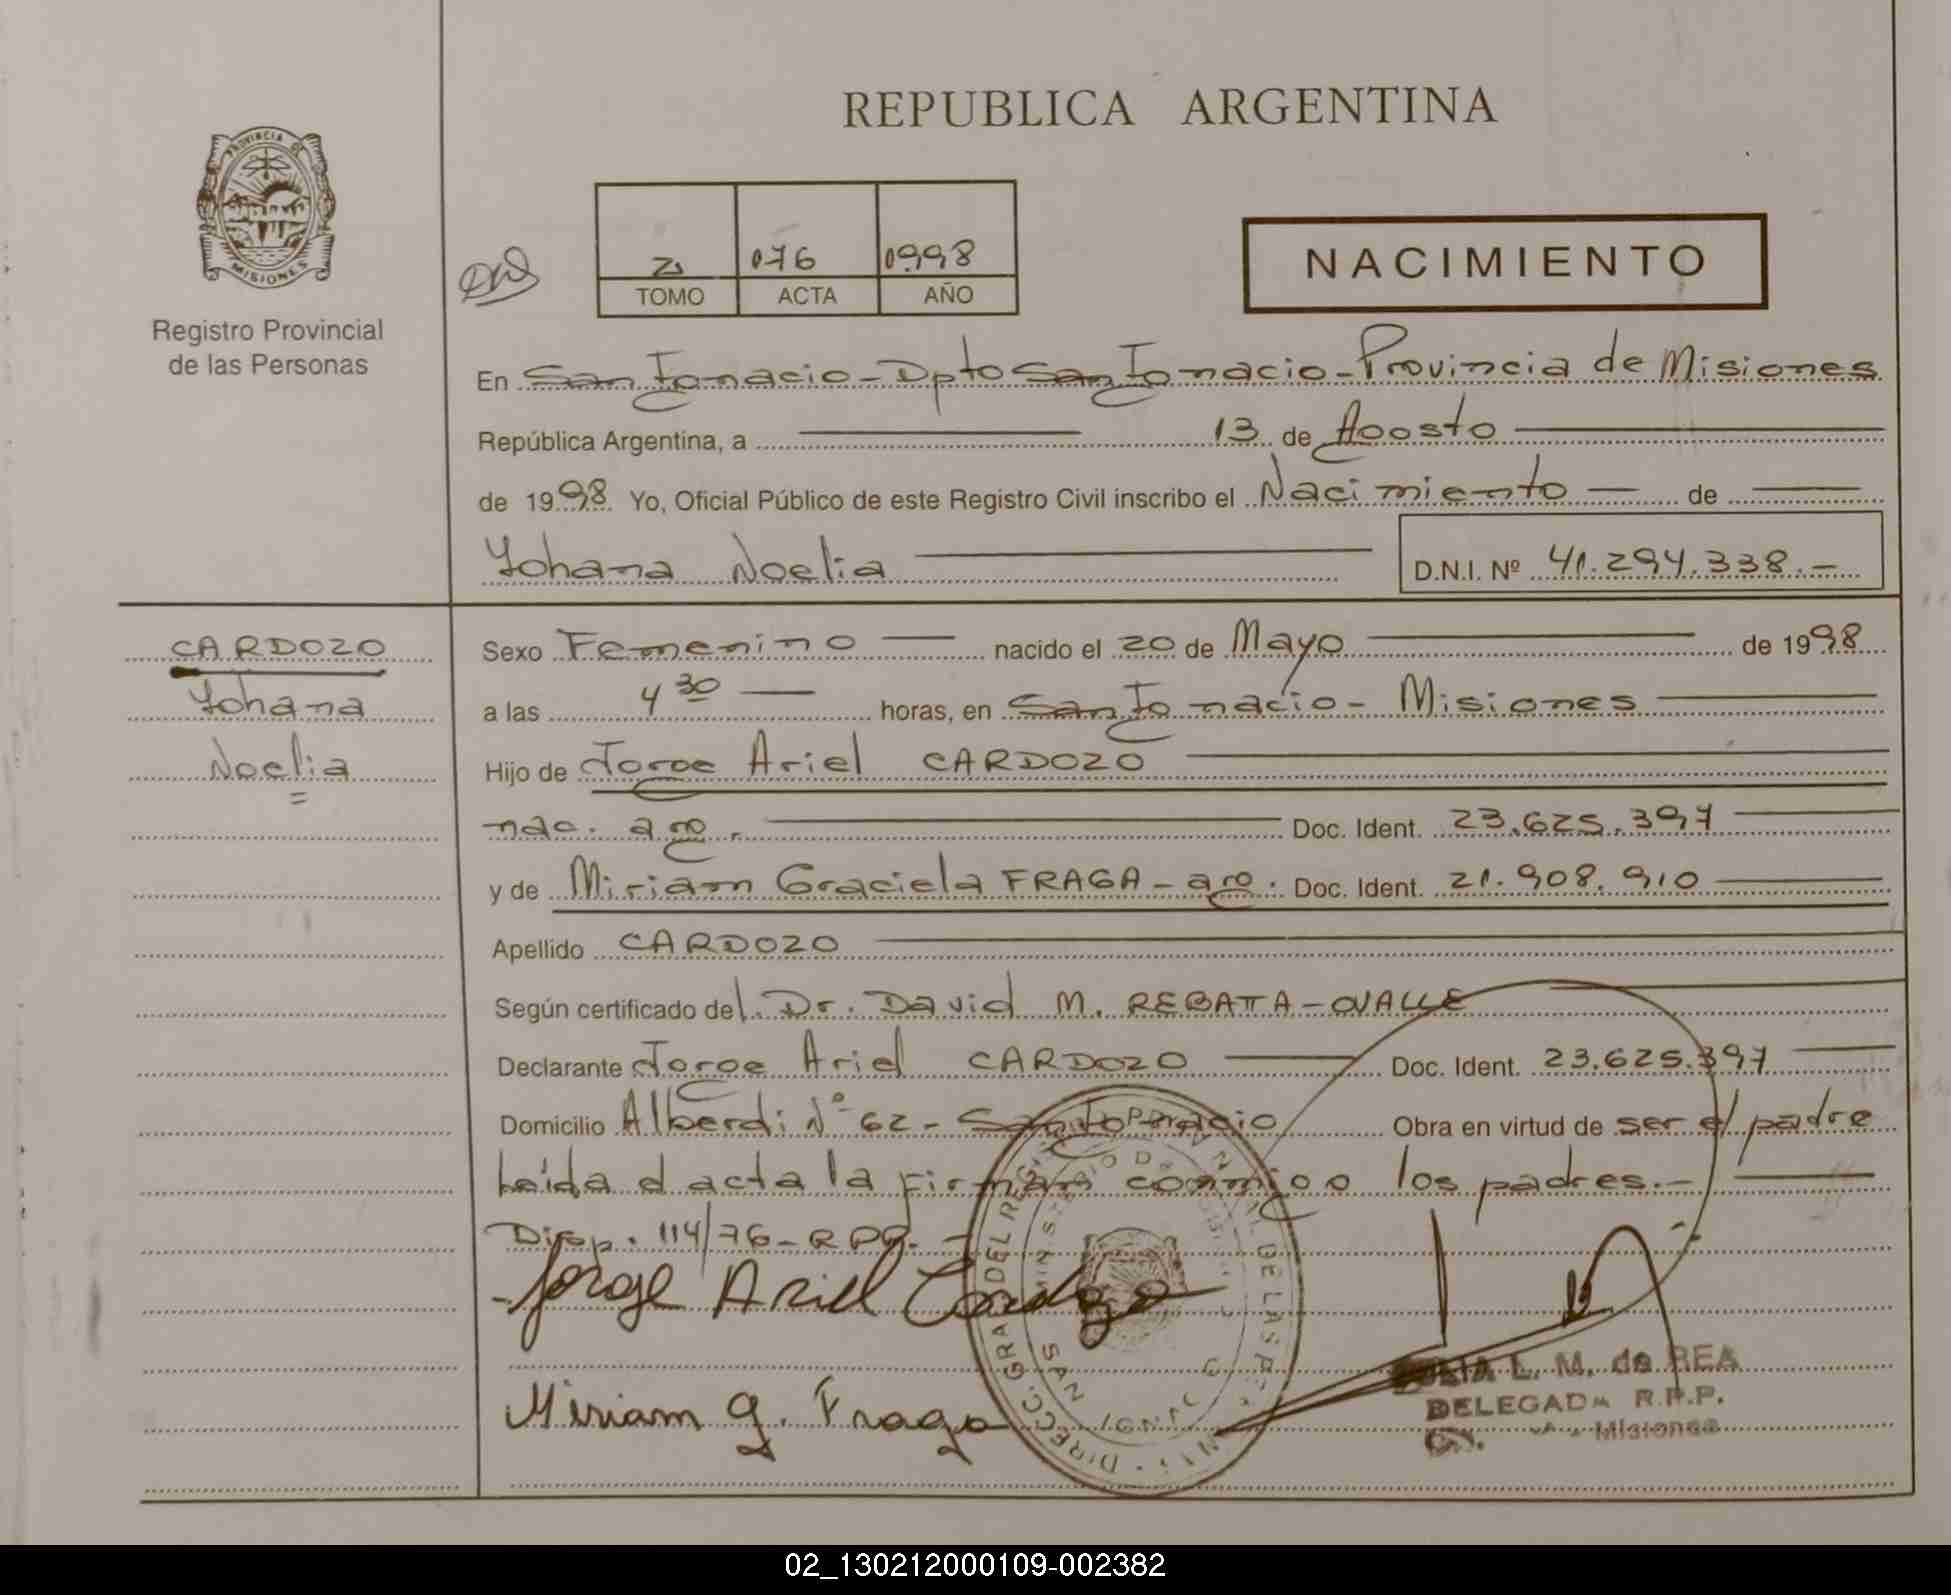 REPUBLICA ARGENTINA
PROVINCIA DE
MISIONES
Registro Provincial
de las Personas
2 076 0998
TOMO ACTA AÑO
NACIMIENTO
En San Ignacio - Dpto San Ignacio - Provincia de Misiones
República Argentina, a 13 de Agosto
de 1998 Yo, Oficial Público de este Registro Civil inscribo el Nacimiento de
Yohana Noelia
D.N.I. Nº 41.294.338.-
CARDOZO
Yohana
Noelia
Sexo Femenino nacido el 20 de Mayo de 1998
a las 4 30 horas, en San Ignacio - Misiones
Hijo de Jorge Ariel CARDOZO
nac. arg. Doc. Ident. 23.625.397
y de Miriam Graciela FRAGA - arg. Doc. Ident. 21.908.910
Apellido CARDOZO
Según certificado del Dr. David M. REBATTA-OVALLE
Declarante Jorge Ariel CARDOZO Doc. Ident. 23.625.397
Domicilio Alberdi Nº 62 - San Ignacio Obra en virtud de ser el padre
Leída el acta la firman conmigo los padres.-
Disp. 114/76-RPP.-
Jorge Ariel Cardozo
L. M. de REA
DELEGADA R.P.P.
Misiones
Miriam G. Fraga
02_130212000109-002382